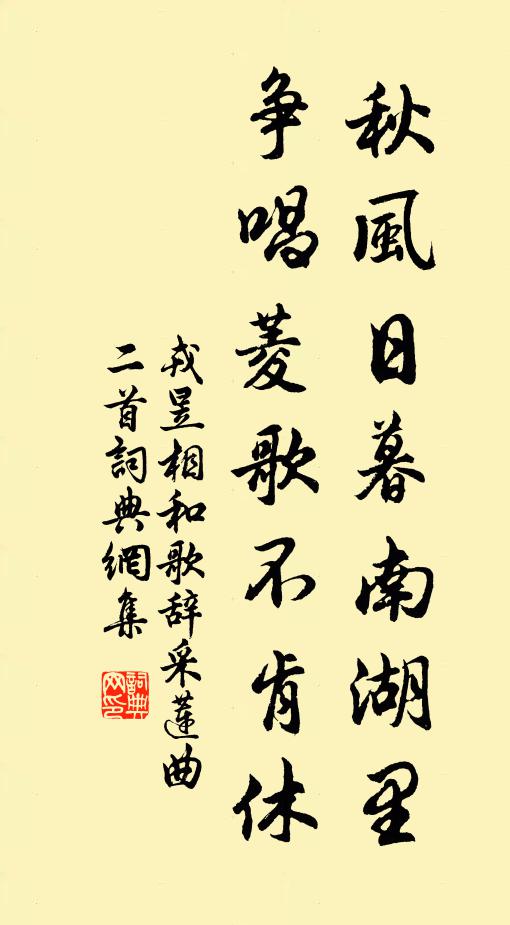 秋風日暮南湖里
争唱菱歌不肯休
戎昱相和歌辞采蓮曲
二首詞典網集
詞典
网印